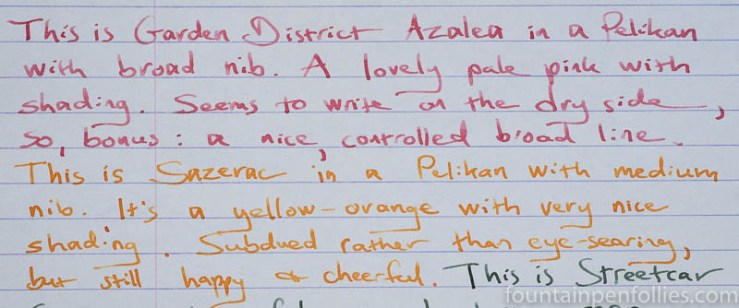 This is Garden District Azalea in a Pelikan
with broad nib. A lovely pale pink with
shading. Seems to write on the dry side,
so, bonus: a nice, controlled broad line.
This is Sazerac in a Pelikan with medium
nib. It's a yellow-orange with very nice
shading. Subdued rather than eye-searing,
but still happy & cheerful. This is Streetcar
fountainpenfollies.com